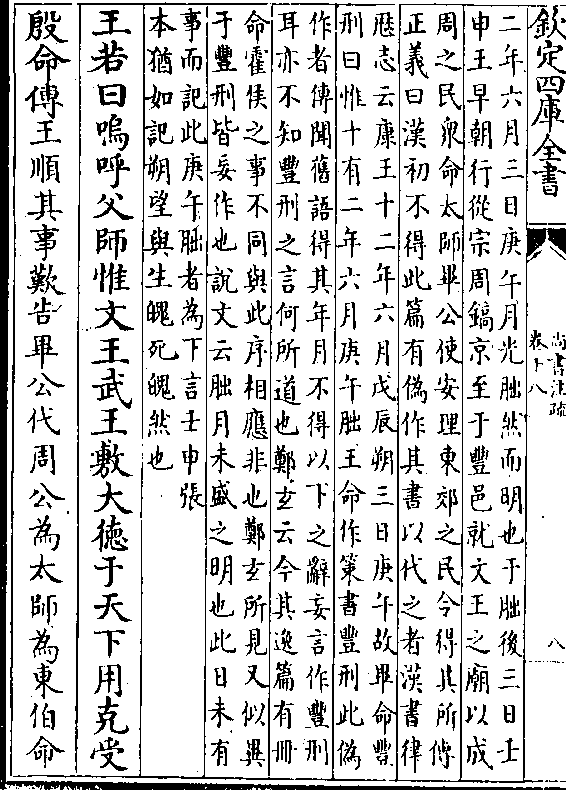 欽定四庫全書
尚書注疏
卷十八
八
二年六月三日庚午月光朏然而明也于朏後三日壬
申王早朝行從宗周鎬京至于豐邑就文王之廟以成
周之民衆命太師畢公使安理東郊之民令得其所傳
正義曰漢初不得此篇有偽作其書以代之者漢書律
厯志云康王十二年六月戊辰朔三日庚午故畢命豐
刑曰惟十有二年六月庚午朏王命作策書豐刑此偽
作者傳聞舊語得其年月不得以下之辭妄言作豐刑
耳亦不知豐刑之言何所道也鄭玄云今其逸篇有冊
命霍侯之事不同與此序相應非也鄭玄所見又似異
于豐刑皆妄作也説文云朏月未盛之明也此日未有
事而記此庚午朏者為下言壬申張
本猶如記朔望與生魄死魄然也
王若曰嗚呼父師惟文王武王敷大徳于天下用克受
殷命傳王順其事歎告畢公代周公為太師為東伯命